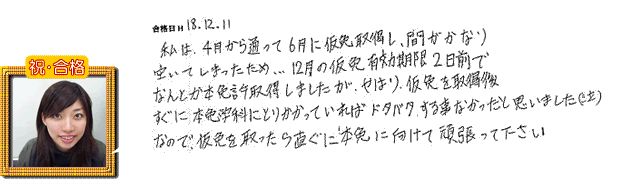 合格日H 18.12.11
私は、4月から通って6月に仮免取得し、間がかなり
空いてしまったため… 12月の仮免有効期限2日前で
なんとか本免許取得しましたが、やはり、仮免を取得後
すぐに本免学科にとりかかっていればドタバタする事なかったと思いました(笑)
なので、仮免を取ったら直ぐに本免に向けて頑張って下さい
祝・合格